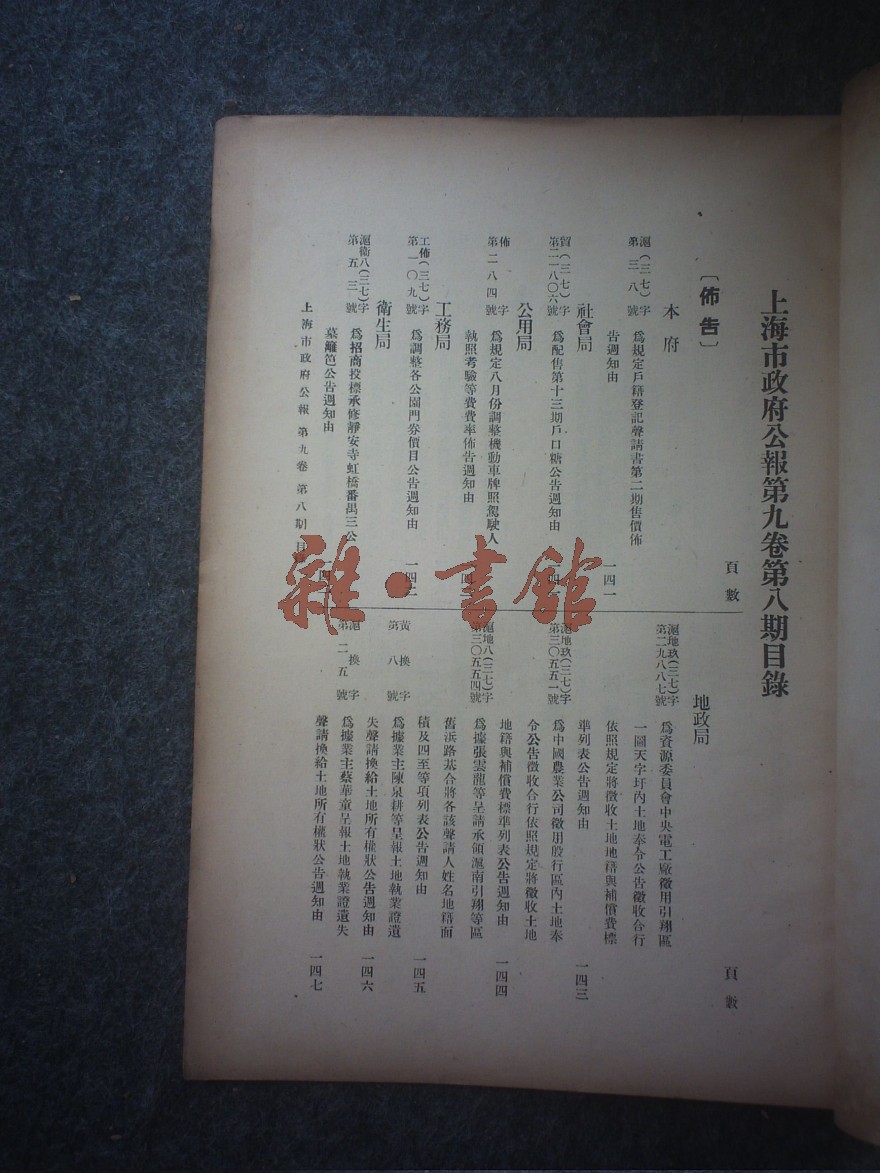 上海市政府公報第九卷第八期目錄
頁數
〔佈告〕
本府
滬(三七)字
第三八號
為規定戶籍登記聲請書第二期售價佈
告週知由
一四一
社會局
貿(三七)字
第二一八〇六號
為配售第十三期戶口糖公告週知由
公用局
佈字
第二八四號
為規定八月份調整機動車牌照駕駛人
執照考驗等費費率佈告週知由
工務局
工佈(三七)字
第一〇九號
為調整各公園門券價目公告週知由
一四二
衛生局
滬衞八(三七)字
第五三號
為招商投標承修靜安寺虹橋番禺三公
墓籬笆公告週知由
頁數
地政局
滬地玖(三七)字
第二九八八七號
為資源委員會中央電工廠徵用引翔區
一圖天字圩內土地奉令公告徵收合行
依照規定將徵收土地地籍與補償費標
準列表公告週知由
一四三
滬地玖(三七)字
第三〇五五一號
為中國農業公司徵用殷行區內土地奉
令公告徵收合行依照規定將徵收土地
地籍與補償費標準列表公告週知由
一四四
滬地八(三七)字
第三〇五五四號
為據張雲龍等呈請承領滬南引翔等區
舊浜路基合將各該聲請人姓名地籍面
積及四至等項列表公告週知由
一四五
黃換字
第八號
為據業主陳泉耕等呈報土地執業證遺
失聲請換給土地所有權狀公告週知由
一四六
滬換字
第二五號
為據業主蔡華童呈報土地執業證遺失
聲請換給土地所有權狀公告週知由
一四七
上海市政府公報 第九卷 第八期 目
雜·書館